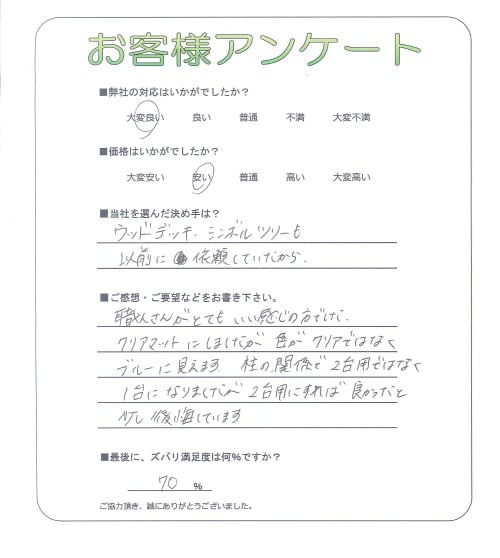 お客様アンケート
■弊社の対応はいかがでしたか？
大変良い 良い 普通 不満 大変不満
■価格はいかがでしたか？
大変安い 安い 普通 高い 大変高い
■当社を選んだ決め手は？
ウッドデッキ、シンボルツリーも
以前に 依頼していたから。
■ご感想・ご要望などをお書き下さい。
職人さんがとても いい感じの方でした。
クリアマットにしましたが 色が クリアではなく
ブルーに見えます 柱の関係で 2台用ではなく
1台に なりましたが 2台用にすれば 良かったと
少し 後悔しています
■最後に、ズバリ満足度は何％ですか？
70 ％
ご協力頂き、誠にありがとうございました。